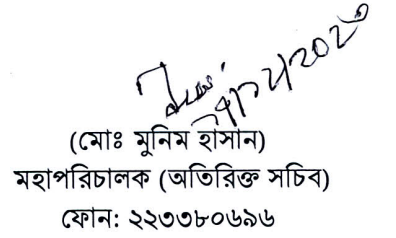 (মোঃ মুনিম হাসান)
মহাপরিচালক (অতিরিক্ত সচিব)
ফোন: ২২৩৩৮০৬৯৬